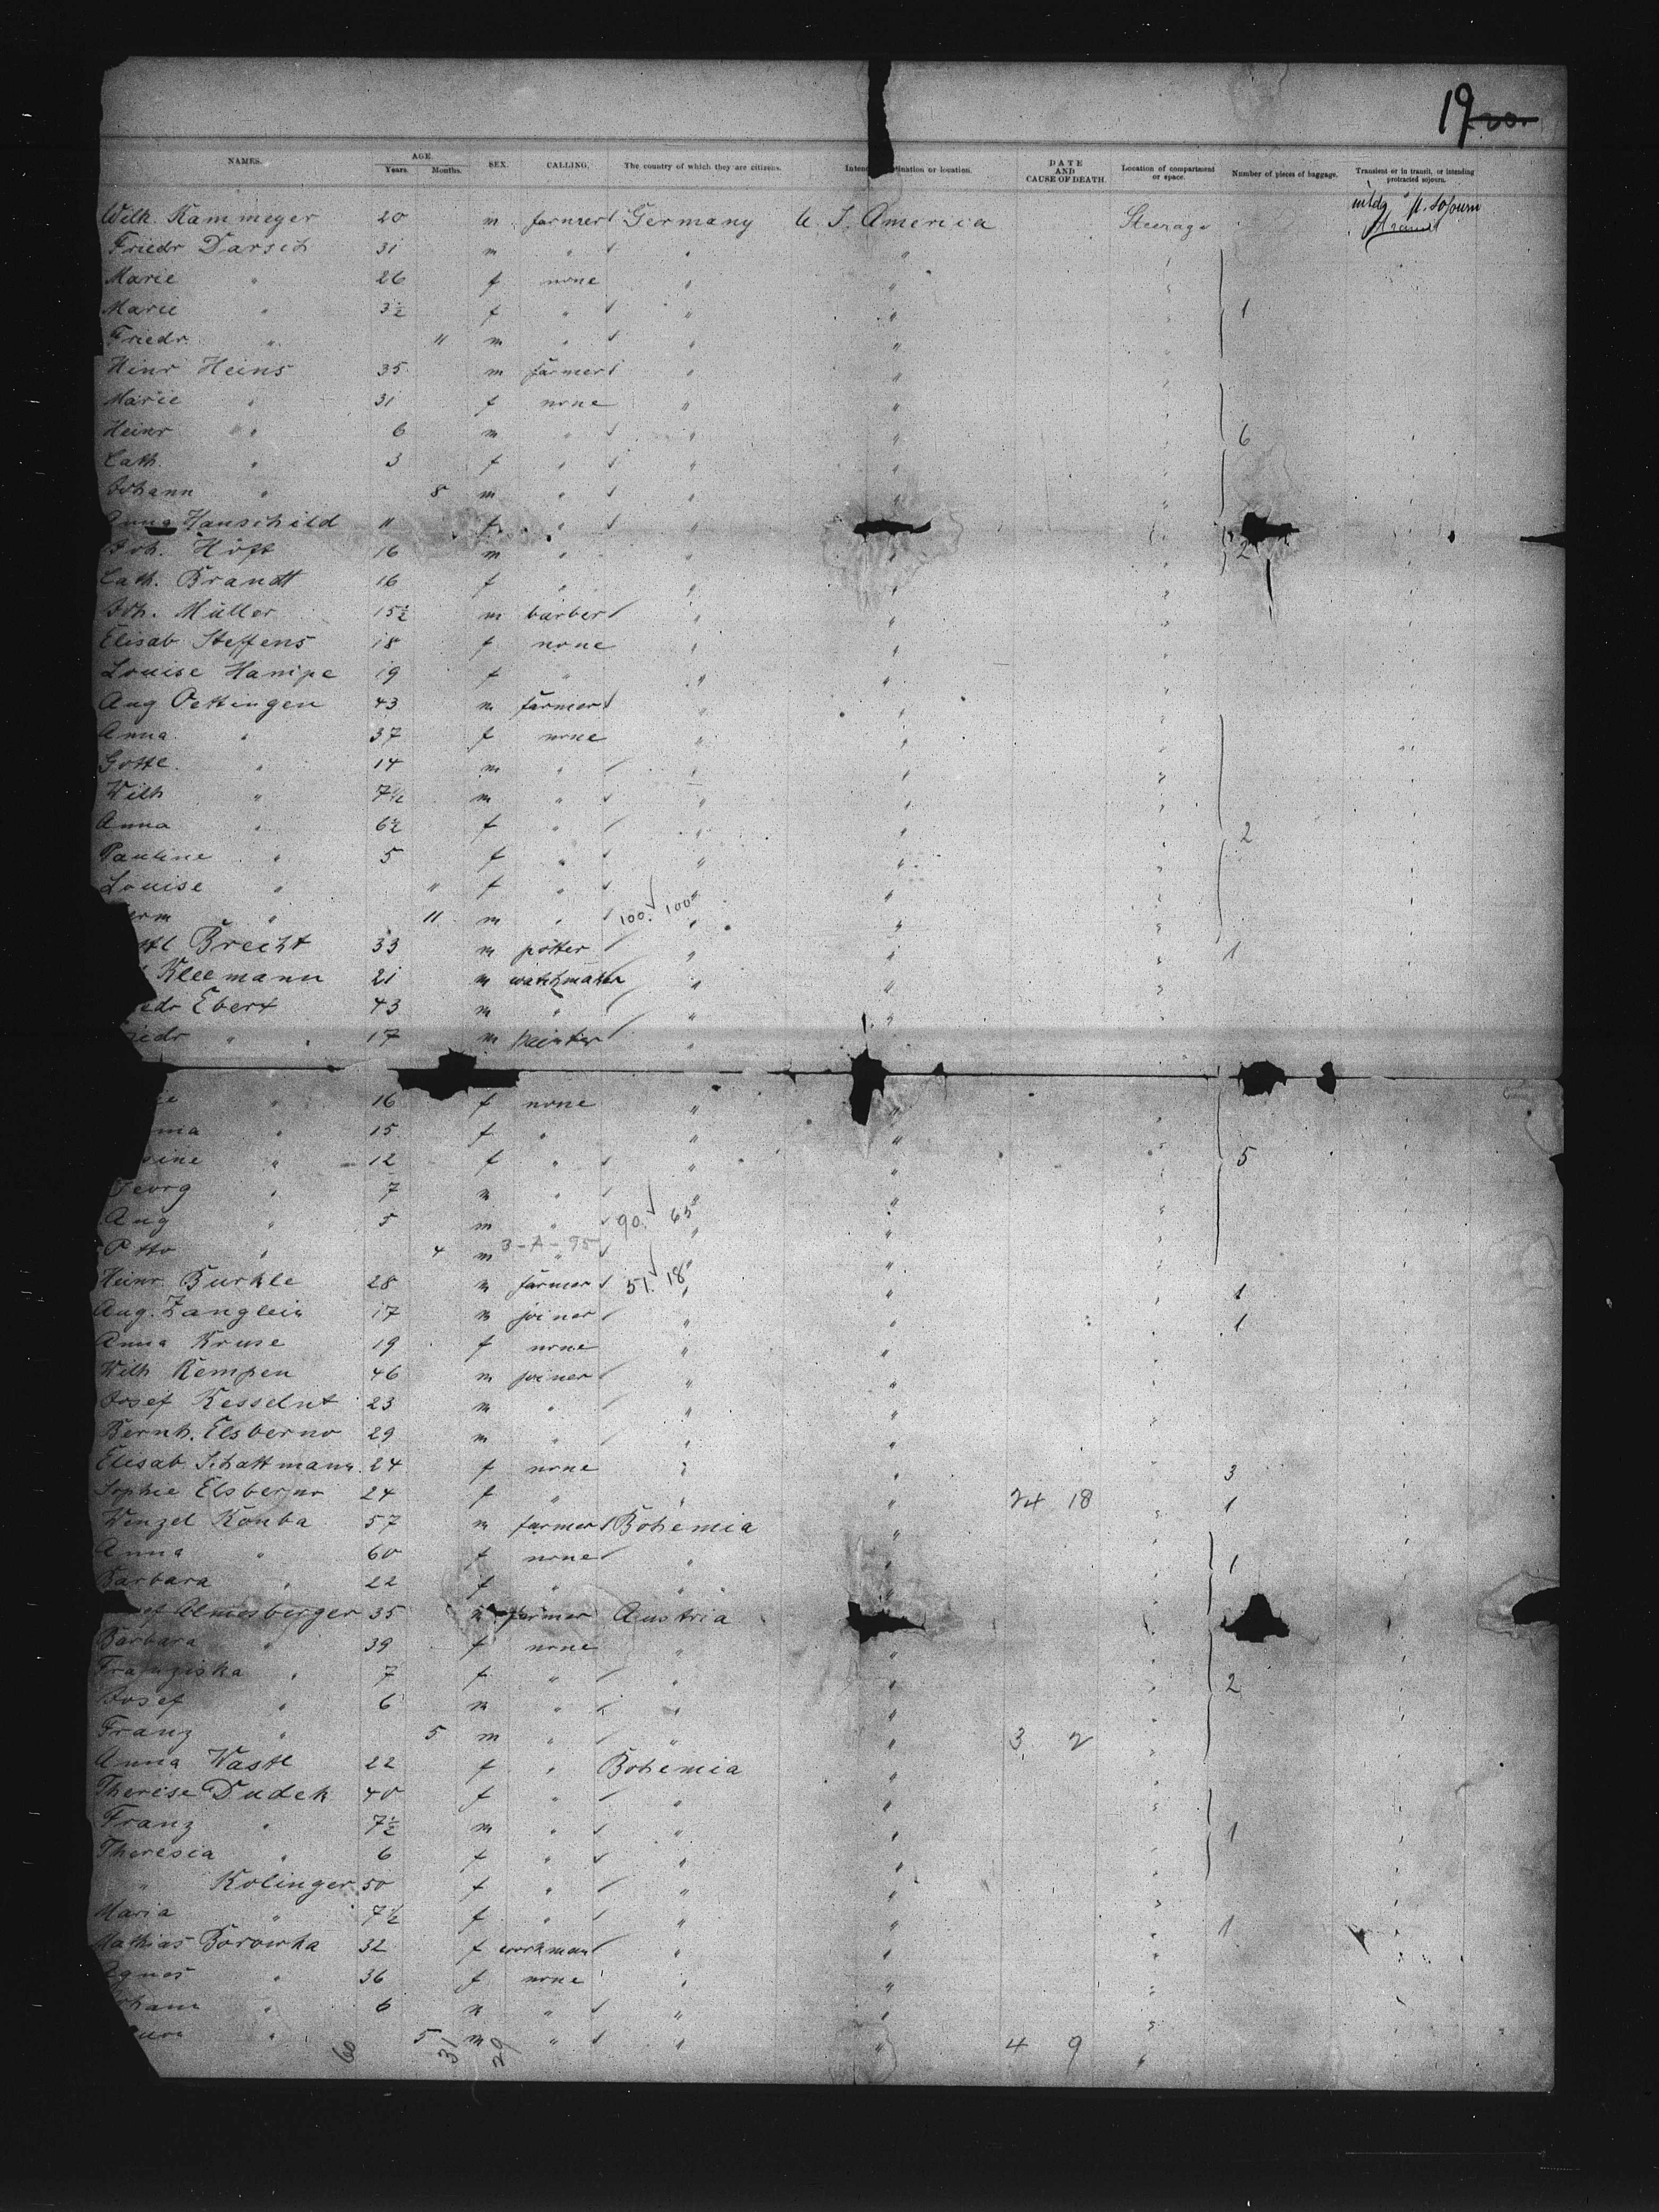 19 20
NAMES. AGE. Years. Months. SEX. CALLING. The country of which they are citizens. Intended destination or location. DATE AND CAUSE OF DEATH. Location of compartment or space. Number of pieces of baggage. Transient or in transit, or intending protracted sojourn.
Wilh. Kammeyer 20 m farmer Germany U. S. America Steerage
Friedr Darsch 31 m " " "
Marie " 26 f none " "
Marie " 3½ f " " " 1
Friedr " 11 m " " "
Hinr Heins 35 m farmer " "
Marie " 31 f none " "
Heinr " 6 m " " " 6
Cath. " 3 f " " "
Johann " 8 m " " "
Anna Hauschild 11 f " "
Joh. Höft 16 m " " " 2
Cath. Brandt 16 f " " "
Joh. Müller 15½ m barber " "
Elisab Steffens 18 f none " "
Louise Hampe 19 f " " "
Aug Oettingen 43 m farmer " "
Anna " 37 f none " "
Gottl. " 14 m " " "
Wilh " 7½ m " " "
Anna " 6½ f " " " 2
Pauline " 5 f " " "
Louise " 11 f " " "
erm " 11 m " 100. 100 " "
ttl Brecht 33 m potter " " 1
Kleemann 21 m watchmaker " "
edr Ebert 43 m " " "
iedr " 17 m painter "
ie " 16 f none " "
ma " 15 f " " "
sine " 12 f " " " 5
Georg " 7 m " " "
Aug " 5 m " 90. 65 " "
Otto " 4 m " " "
3-A-95
Heinr Burkle 28 m farmer 51. 18 " " 1
Aug. Zanglein 17 m joiner " " 1
Anna Kruse 19 f none " "
Wilh Kempen 46 m joiner " "
Josef Kesselnt 23 m " " "
Bernh. Elsberno 29 m " " "
Elisab Schattmann 24 f none " " 3
Sophie Elsberno 24 f " " " 24 18 1
Wenzel Kouba 57 m farmer Bohemia "
Anna " 60 f none " " 1
Barbara " 22 f " " "
ef Almesberger 35 m farmer Austria
Barbara " 39 f none " "
Franziska " 7 f " " " 2
Josef " 6 m " " "
Franz " 5 m " " " 3 2
Anna Wastl 22 f " Bohemia "
Therese Dudek 40 f " " "
Franz " 7½ m " " " 1
Theresia " 6 f " " "
" Kolinger 50 f " " "
Maria " 7½ f " " " 1
Mathias Borowka 32 f workman " "
Agnes " 36 f none " "
ohann " 6 m " " "
" 5 m " " " 4 9
60 31 29